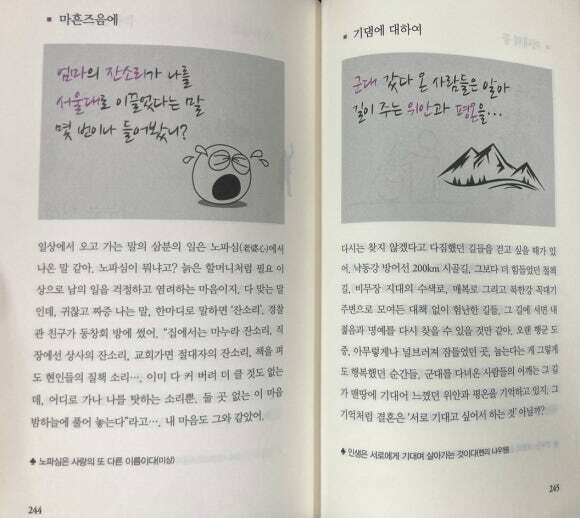 ▪ 마흔즈음에
엄마의 잔소리가 나를
서울대로 이끌었다는 말
몇 번이나 들어봤니?
일상에서 오고 가는 말의 삼분의 일은 노파심(老婆心)에서
나온 말 같아. 노파심이 뭐냐고? 늙은 할머니처럼 필요 이
상으로 남의 일을 걱정하고 염려하는 마음이지. 다 맞는 말
인데, 귀찮고 짜증 나는 말, 한마디로 말하면 '잔소리'. 경찰
관 친구가 동창회 방에 썼어. "집에서는 마누라 잔소리, 직
장에선 상사의 잔소리, 교회가면 절대자의 잔소리, 책을 펴
도 현인들의 질책 소리…. 이미 다 커 버려 더 클 것도 없는
데, 어디로 가나 나를 탓하는 소리뿐. 둘 곳 없는 이 마음
밤하늘에 풀어 놓는다"라고…. 내 마음도 그와 같았어.
♣ 노파심은 사랑의 또 다른 이름이다(이상)
244
▪ 기댐에 대하여
군대 갔다 온 사람들은 알아
길이 주는 위안과 평온을...
다시는 찾지 않겠다고 다짐했던 길들을 걷고 싶을 때가 있
어. 낙동강 방어선 200km 시골길, 그보다 더 힘들었던 철책
길, 비무장 지대의 수색로, 매복로 그리고 북한강 꼭대기
주변으로 모여든 대책 없이 험난한 길들, 그 길에 서면 내
젊음과 명예를 다시 찾을 수 있을 것만 같아. 오랜 행군 도
중, 아무렇게나 널브러져 잠들었던 곳, 눕는다는 게 그렇게
도 행복했던 순간들. 군대를 다녀온 사람들의 어깨는 그 길
가 맨땅에 기대어 느꼈던 위안과 평온을 기억하고 있지. 그
기억처럼 결혼은 '서로 기대고 싶어서 하는 것' 아닐까?
♣ 인생은 서로에게 기대며 살아가는 것이다(헨리 나우웬)
245